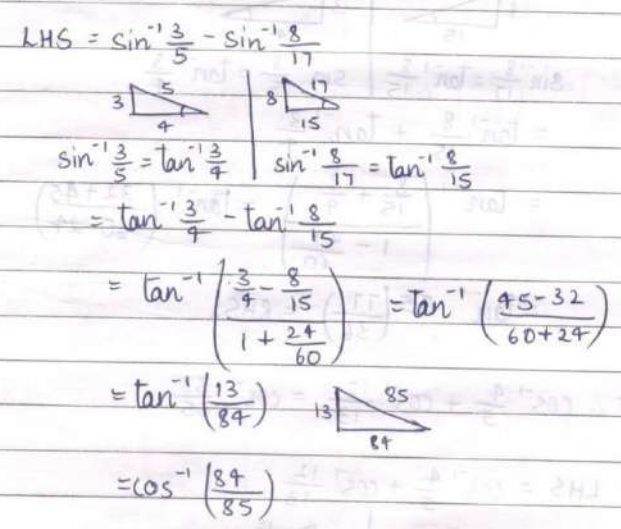 LHS = sin⁻¹ 3/5 - sin⁻¹ 8/17
3 5 4 | 8 17 15
sin⁻¹ 3/5 = tan⁻¹ 3/4 | sin⁻¹ 8/17 = tan⁻¹ 8/15
= tan⁻¹ 3/4 - tan⁻¹ 8/15
= tan⁻¹ ((3/4 - 8/15)/(1 + 24/60)) = tan⁻¹ ((45-32)/(60+24))
= tan⁻¹ (13/84) 13 85 84
= cos⁻¹ (84/85)